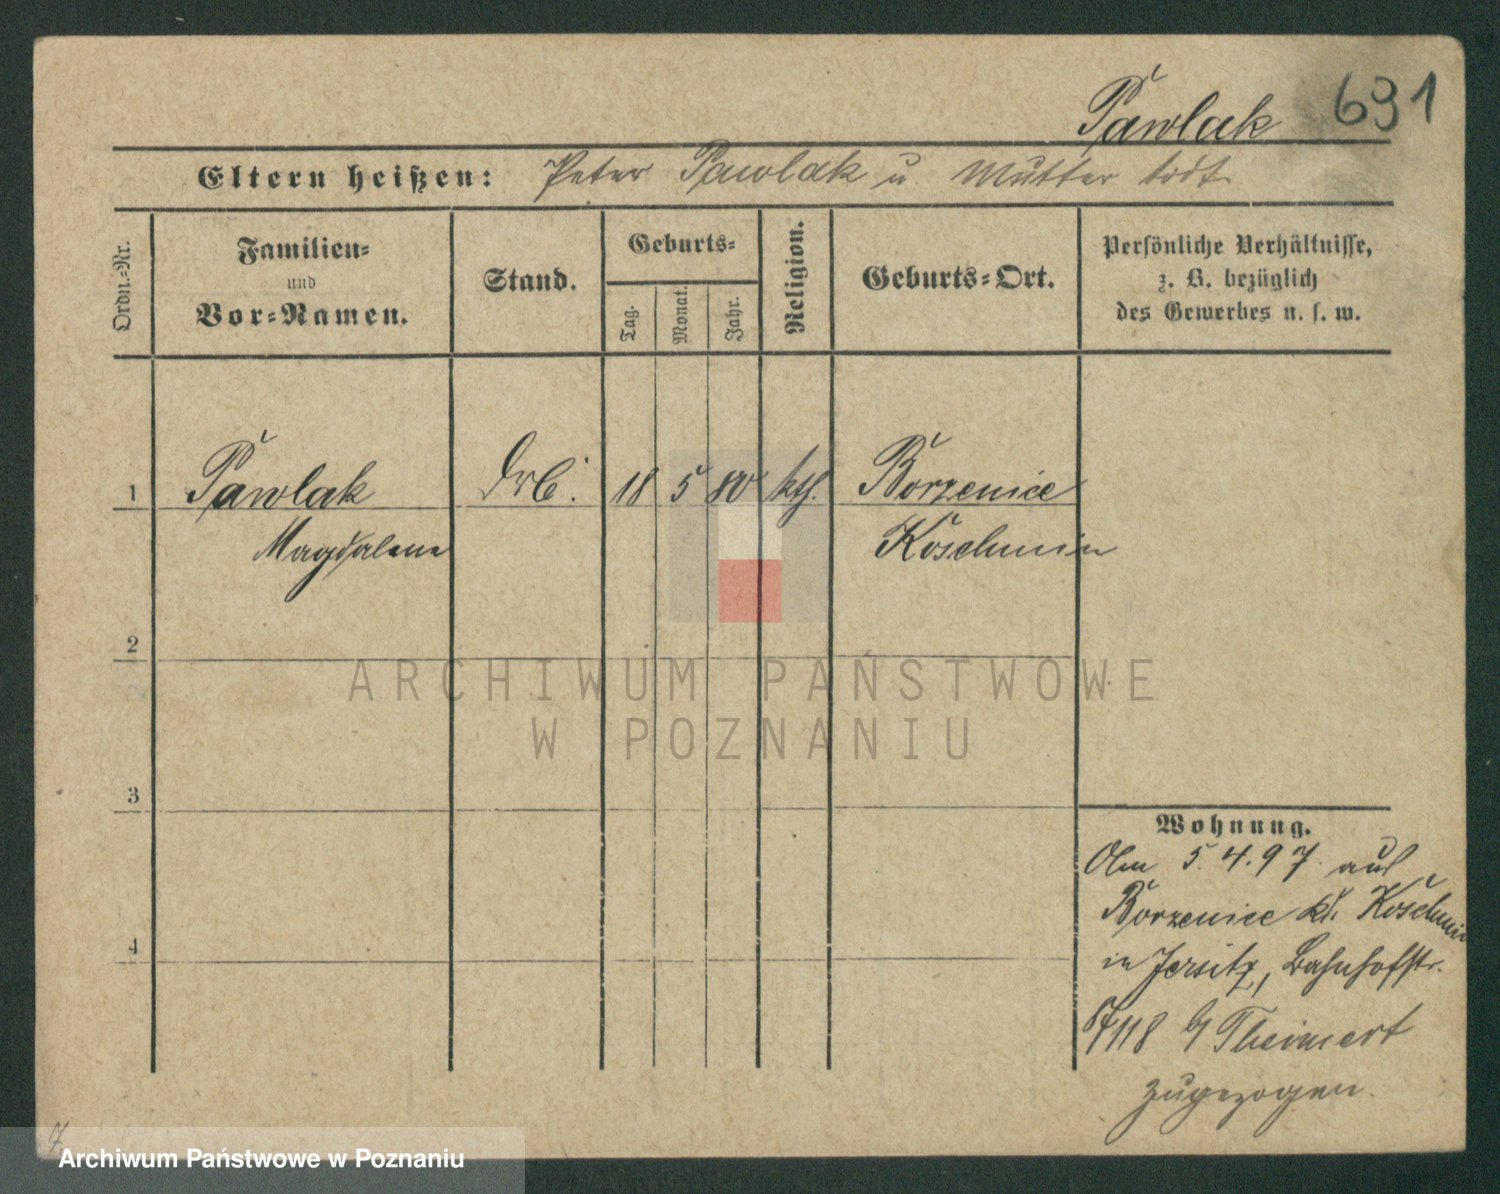 Pawlak 691
Eltern heißen: Peter Pawlak u Mutter todt.
Ordn.-Nr.
Familien-
und
Vor-Namen.
Stand.
Geburts-
Tag.
Monat.
Jahr.
Religion.
Geburts-Ort.
Persönliche Verhältnisse,
z. B. bezüglich
des Gewerbes u. s. w.
1 Pawlak 18 5 80 kth. Borzenice
Magdalena Koschmin
2
ARCHIWUM PAŃSTWOWE
W POZNANIU
3
Wohnung.
5.4.97. auf
Borzenice Koschmin
4
in Jersitz, Bahnhofstr.
zugezogen.
7
Archiwum Państwowe w Poznaniu